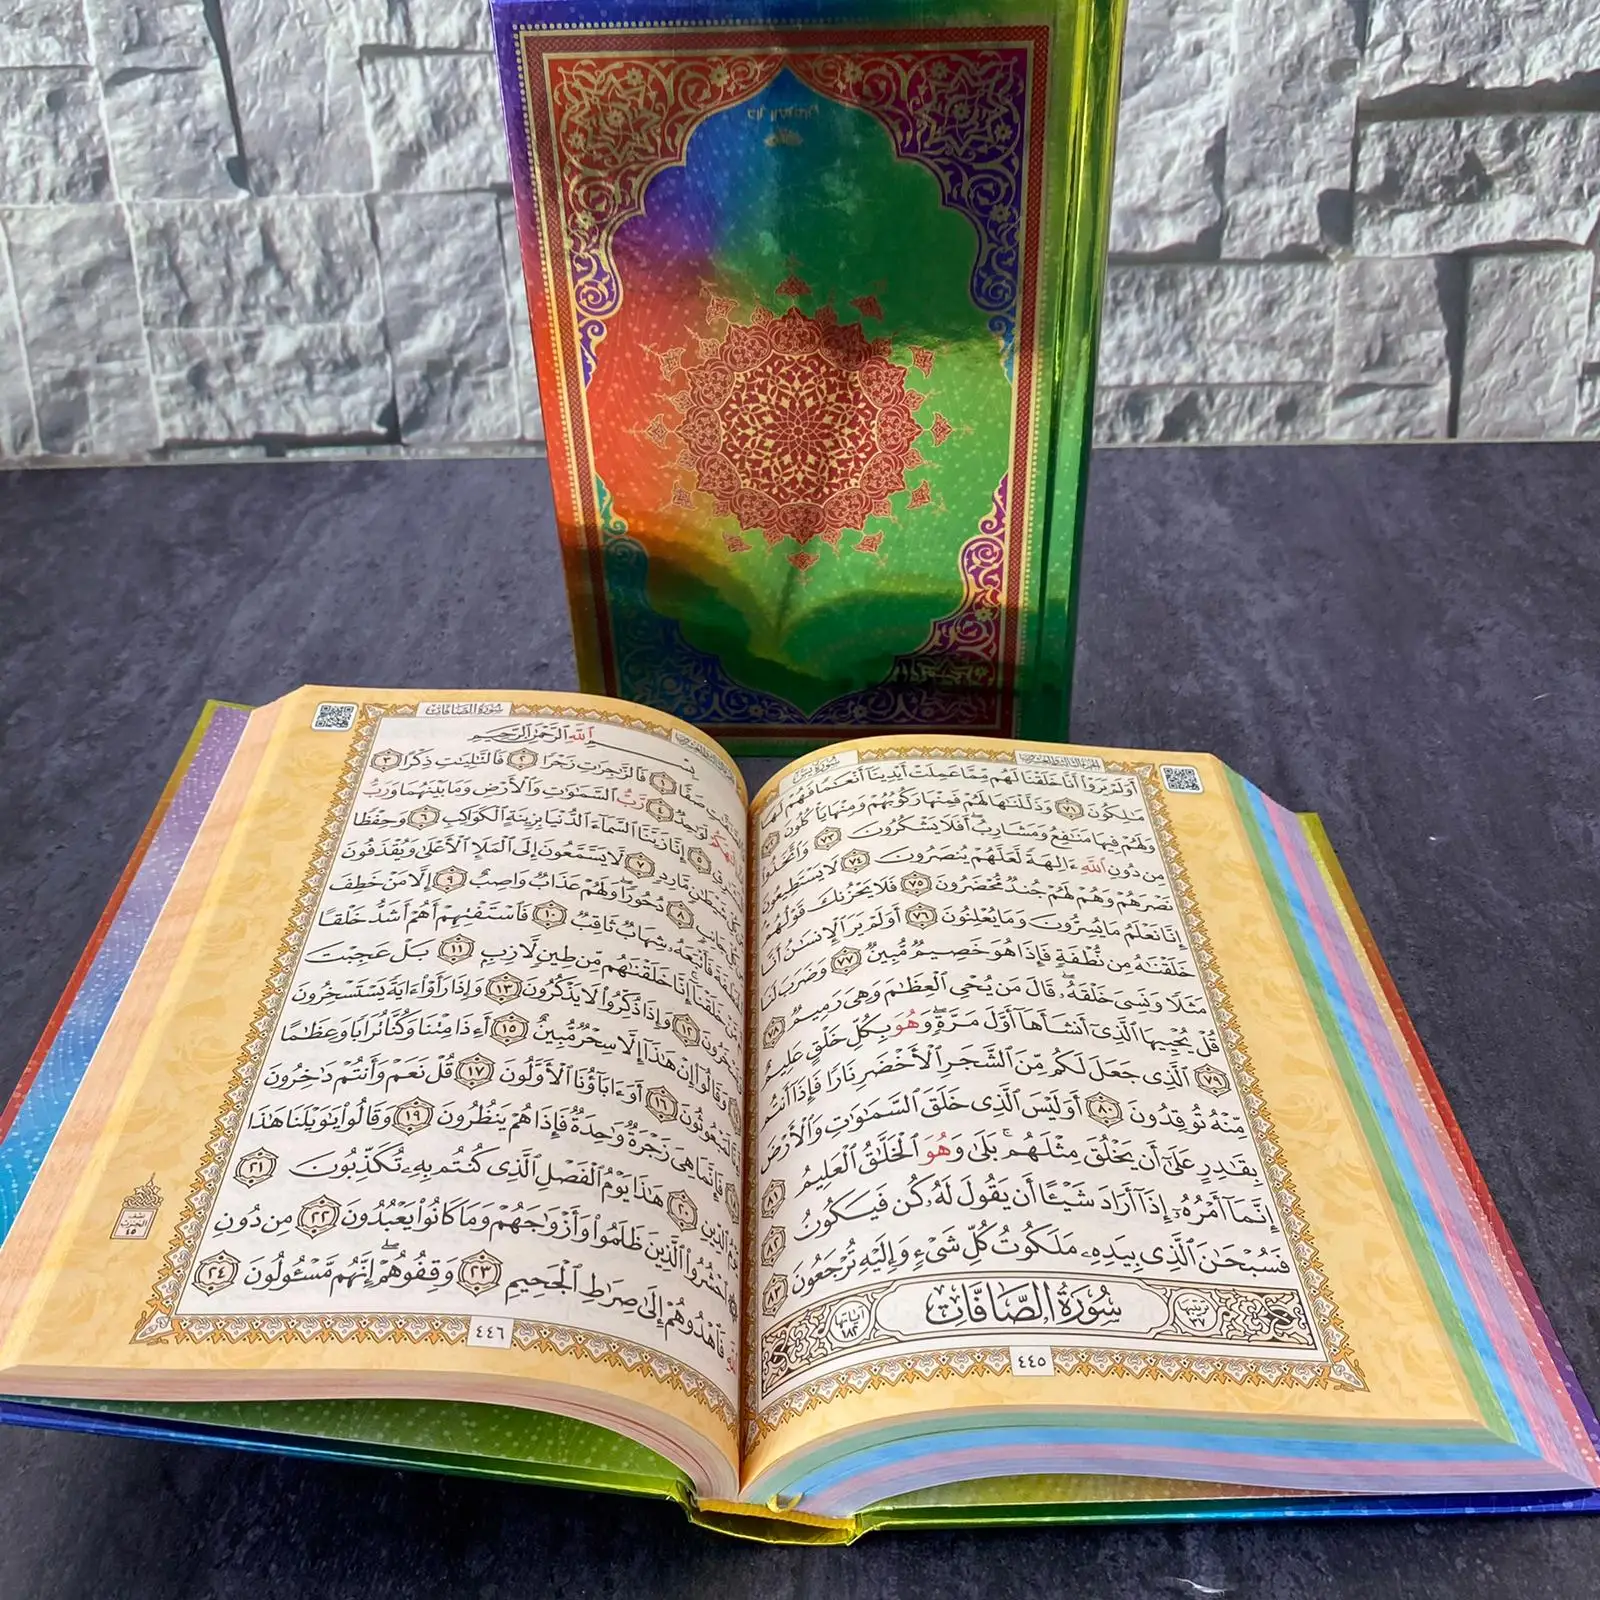 الجزء الثالث والعشرون
سورة يس
أَوَلَمْ يَرَوْا أَنَّا خَلَقْنَا لَهُم مِّمَّا عَمِلَتْ أَيْدِينَا أَنْعَامًا فَهُمْ لَهَا
مَالِكُونَ ٧١ وَذَلَّلْنَاهَا لَهُمْ فَمِنْهَا رَكُوبُهُمْ وَمِنْهَا يَأْكُلُونَ ٧٢
وَلَهُمْ فِيهَا مَنَافِعُ وَمَشَارِبُ أَفَلَا يَشْكُرُونَ ٧٣ وَاتَّخَذُوا
مِن دُونِ اللَّهِ ءَالِهَةً لَّعَلَّهُمْ يُنصَرُونَ ٧٤ لَا يَسْتَطِيعُونَ
نَصْرَهُمْ وَهُمْ لَهُمْ جُندٌ مُّحْضَرُونَ ٧٥ فَلَا يَحْزُنكَ قَوْلُهُمْ
إِنَّا نَعْلَمُ مَا يُسِرُّونَ وَمَا يُعْلِنُونَ ٧٦ أَوَلَمْ يَرَ الْإِنسَانُ أَنَّا
خَلَقْنَاهُ مِن نُّطْفَةٍ فَإِذَا هُوَ خَصِيمٌ مُّبِينٌ ٧٧ وَضَرَبَ لَنَا
مَثَلًا وَنَسِيَ خَلْقَهُ قَالَ مَن يُحْيِ الْعِظَامَ وَهِيَ رَمِيمٌ ٧٨
قُلْ يُحْيِيهَا الَّذِي أَنشَأَهَا أَوَّلَ مَرَّةٍ وَهُوَ بِكُلِّ خَلْقٍ عَلِيمٌ
٧٩ الَّذِي جَعَلَ لَكُم مِّنَ الشَّجَرِ الْأَخْضَرِ نَارًا فَإِذَا أَنتُم
مِّنْهُ تُوقِدُونَ ٨٠ أَوَلَيْسَ الَّذِي خَلَقَ السَّمَاوَاتِ وَالْأَرْضَ
بِقَادِرٍ عَلَىٰ أَن يَخْلُقَ مِثْلَهُم بَلَىٰ وَهُوَ الْخَلَّاقُ الْعَلِيمُ ٨١
إِنَّمَا أَمْرُهُ إِذَا أَرَادَ شَيْئًا أَن يَقُولَ لَهُ كُن فَيَكُونُ ٨٢
فَسُبْحَانَ الَّذِي بِيَدِهِ مَلَكُوتُ كُلِّ شَيْءٍ وَإِلَيْهِ تُرْجَعُونَ ٨٣
ترتيبها ٣٧ سُورَةُ الصَّافَّاتِ آياتها ١٨٢
٤٤٥
سورة الصافات
بِسْمِ اللَّهِ الرَّحْمَٰنِ الرَّحِيمِ
صَفًّا ١ فَالزَّاجِرَاتِ زَجْرًا ٢ فَالتَّالِيَاتِ ذِكْرًا ٣
لَوَاحِدٌ ٤ رَّبُّ السَّمَاوَاتِ وَالْأَرْضِ وَمَا بَيْنَهُمَا وَرَبُّ
٥ إِنَّا زَيَّنَّا السَّمَاءَ الدُّنْيَا بِزِينَةٍ الْكَوَاكِبِ ٦ وَحِفْظًا
شَيْطَانٍ مَّارِدٍ ٧ لَّا يَسَّمَّعُونَ إِلَى الْمَلَإِ الْأَعْلَىٰ وَيُقْذَفُونَ
جَانِبٍ ٨ دُحُورًا وَلَهُمْ عَذَابٌ وَاصِبٌ ٩ إِلَّا مَنْ خَطِفَ
فَأَتْبَعَهُ شِهَابٌ ثَاقِبٌ ١٠ فَاسْتَفْتِهِمْ أَهُمْ أَشَدُّ خَلْقًا
خَلَقْنَا إِنَّا خَلَقْنَاهُم مِّن طِينٍ لَّازِبٍ ١١ بَلْ عَجِبْتَ
١٢ وَإِذَا ذُكِّرُوا لَا يَذْكُرُونَ ١٣ وَإِذَا رَأَوْا ءَايَةً يَسْتَسْخِرُونَ
وَقَالُوا إِنْ هَٰذَا إِلَّا سِحْرٌ مُّبِينٌ ١٥ أَءِذَا مِتْنَا وَكُنَّا تُرَابًا وَعِظَامًا
لَمَبْعُوثُونَ ١٦ أَوَءَابَاؤُنَا الْأَوَّلُونَ ١٧ قُلْ نَعَمْ وَأَنتُمْ دَاخِرُونَ
فَإِنَّمَا هِيَ زَجْرَةٌ وَاحِدَةٌ فَإِذَا هُمْ يَنظُرُونَ ١٩ وَقَالُوا يَاوَيْلَنَا هَٰذَا
الدِّينِ ٢٠ هَٰذَا يَوْمُ الْفَصْلِ الَّذِي كُنتُم بِهِ تُكَذِّبُونَ ٢١
احْشُرُوا الَّذِينَ ظَلَمُوا وَأَزْوَاجَهُمْ وَمَا كَانُوا يَعْبُدُونَ ٢٢ مِن دُونِ
فَاهْدُوهُمْ إِلَىٰ صِرَاطِ الْجَحِيمِ ٢٣ وَقِفُوهُمْ إِنَّهُم مَّسْئُولُونَ ٢٤
نصف الحزب ٤٥
٤٤٦